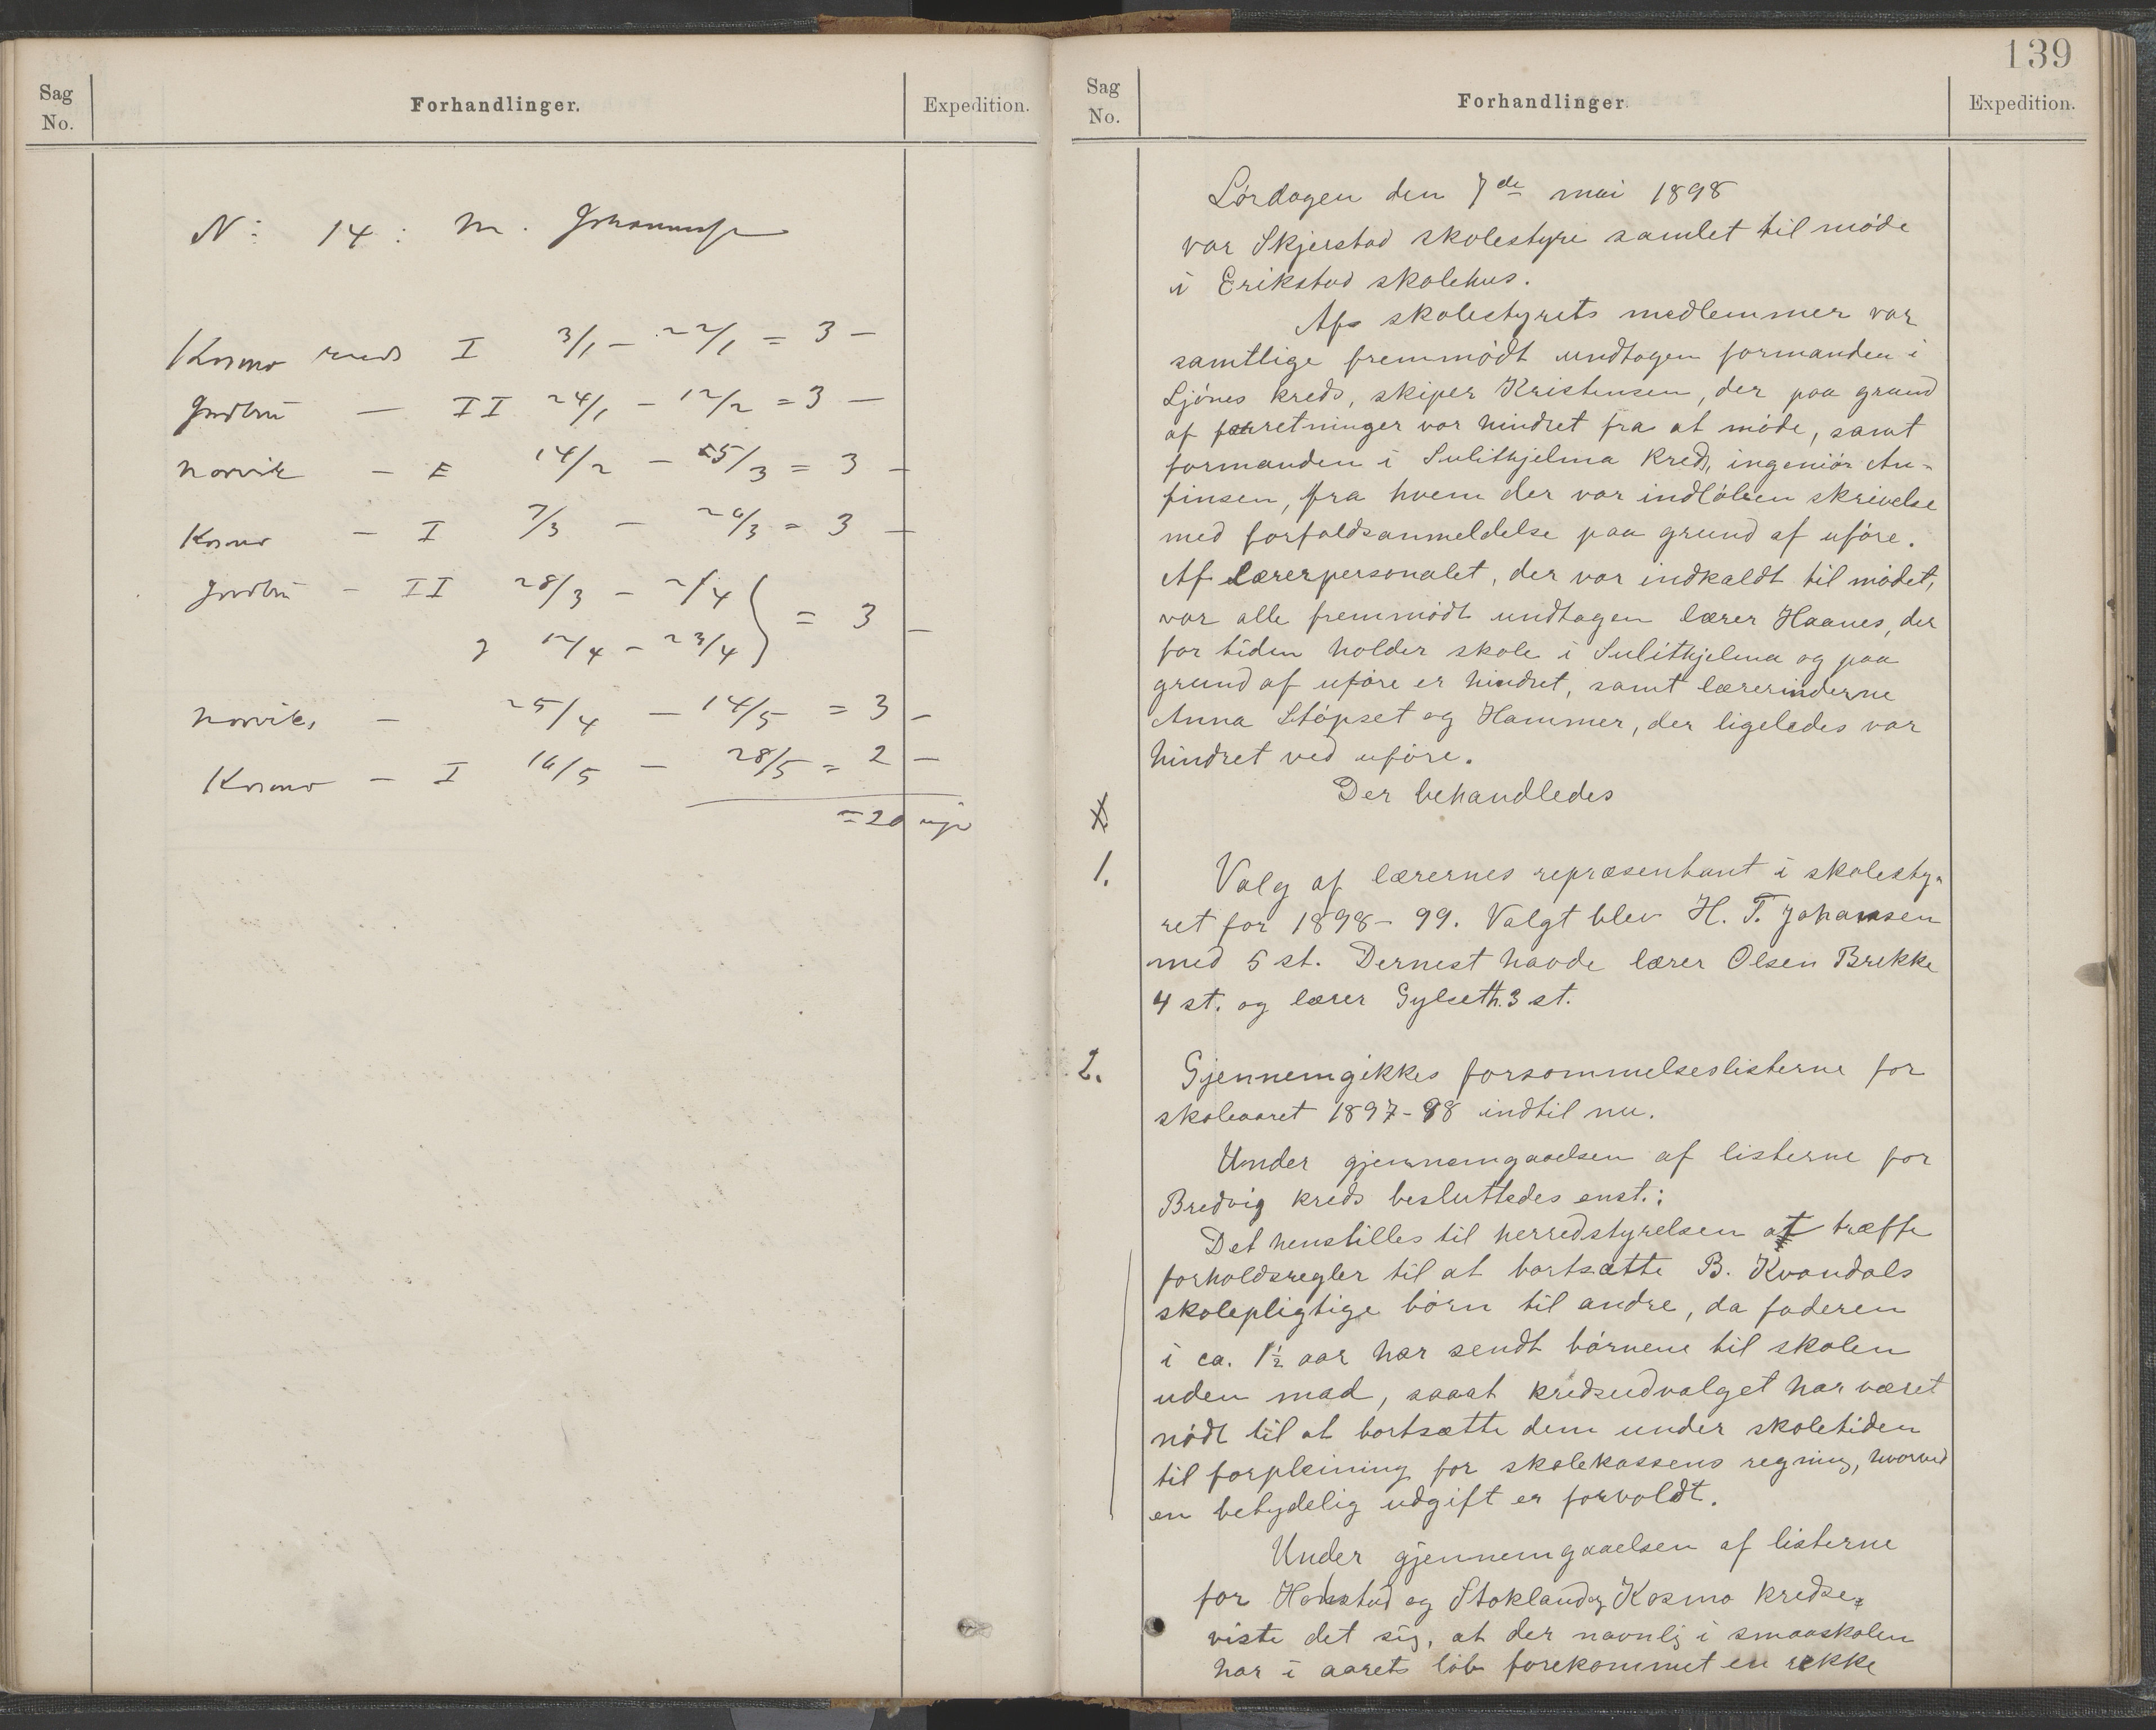 Sag
No.
Forhandlinger.
Expedition.
N: 14: M.
Kosmo kreds I 3/1 - 22/1 = 3 -
— II 24/1 - 12/2 = 3 —
Norvik - 14/2 - 5/3 = 3 -
Kosmo - I 7/3 - 26/3 = 3 -
- II 28/3 - 2/4
12/4 - 23/4 } = 3 -
Norvik - 25/4 - 14/5 = 3 -
Kosmo - I 16/5 - 28/5 = 2 -
= 20
139
Sag
No.
Forhandlinger.
Expedition.
Lørdagen den 7de mai 1898
var Skjerstad skolestyre samlet til møde
i Erikstad skolehus.
Af skolestyrets medlemmer var
samtlige fremmødt undtagen formanden i
Ljønes kreds, skiper Kristensen, der paa grund
af forretninger var hindret fra at møde, samt
formanden i Sulithjelma kreds, ingeniør An-
finsen, fra hvem der var indløben skrivelse
med forfaldsanmeldelse paa grund af uføre.
Af lærerpersonalet, der var indkaldt til mødet,
var alle fremmødt undtagen lærer Haanes, der
for tiden holder skole i Sulithjelma og paa
grund af uføre er hindret, samt lærerinderne
Anna Støpset og Hammer, der ligeledes var
hindret ved uføre.
Der behandledes
1.
Valg af lærernes repræsentant i skolesty-
ret for 1898-99. Valgt blev H. T. Johansen
med 5 st. Dernest havde lærer Olsen Brekke
4 st. og lærer Gylseth 3 st.
2.
Gjennemgikkes forsømmelseslisterne for
skoleaaret 1897-98 indtil nu.
Under gjennemgaaelsen af listerne for
Bredvig kreds besluttedes enst.:
Det henstilles til herredstyrelsen at træffe
forholdsregler til at bortsætte B. Kvandals
skolepligtige børn til andre, da faderen
i ca. 1½ aar har sendt børnene til skolen
uden mad, saaat kredsudvalget har været
nødt til at bortsætte dem under skoletiden
til forpleining for skolekassens regning, hvorved
en betydelig udgift er forvoldt.
Under gjennemgaaelsen af listerne
for og Stokland og Kosmo kredse
viste det sig, at der navnlig i smaaskolen
har i aarets løb forekommet en rekke